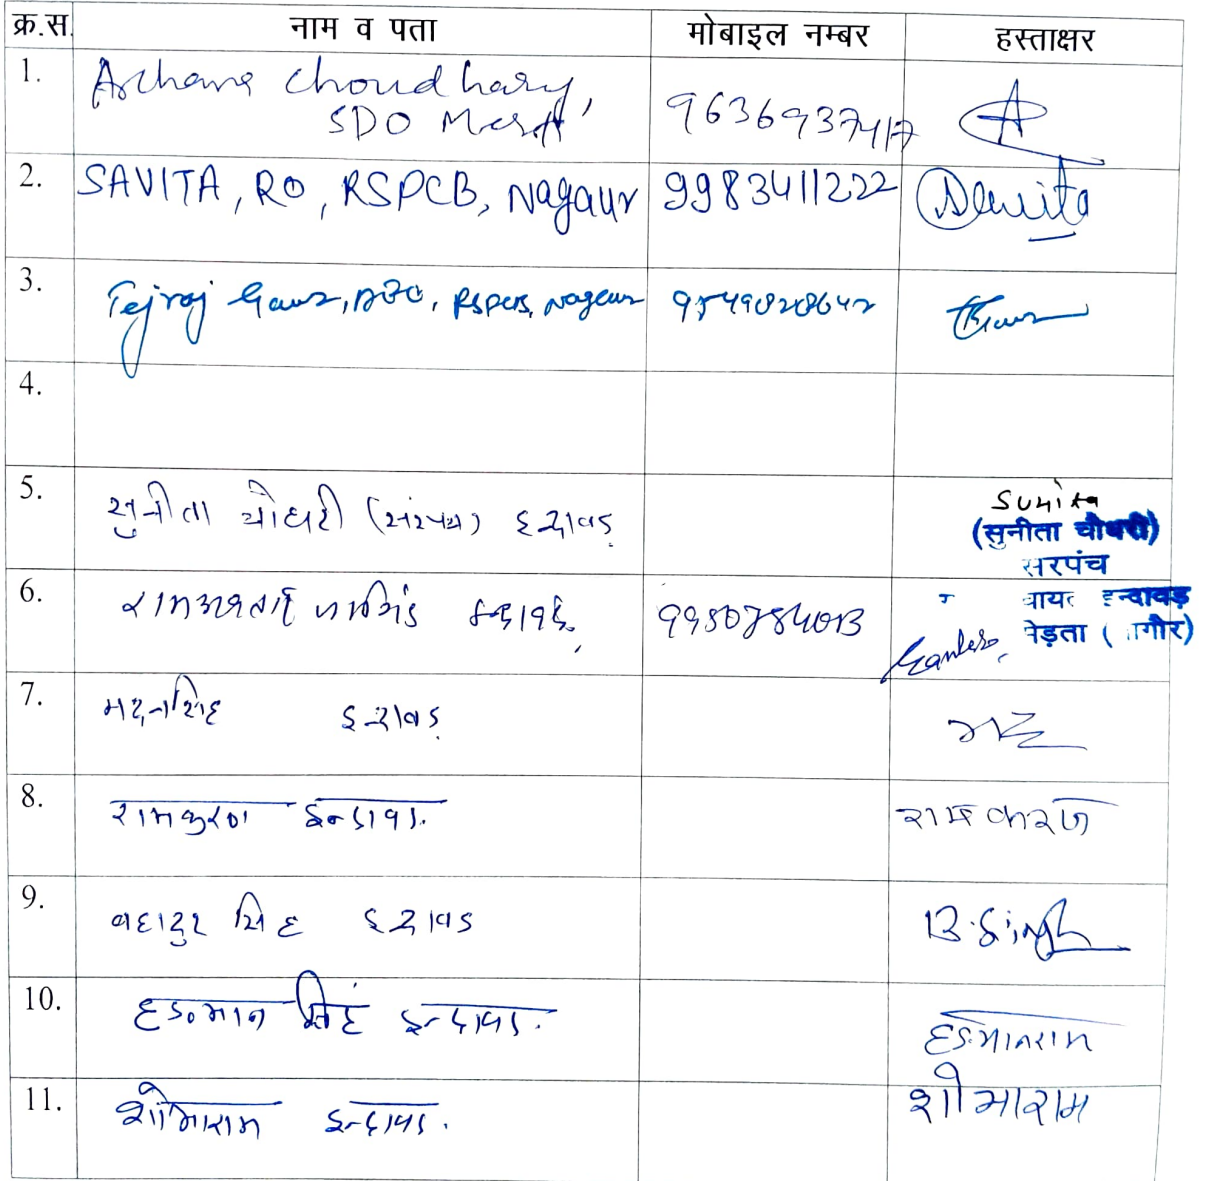 क्र.स. नाम व पता मोबाइल नम्बर हस्ताक्षर
1. Archana Choudhary, 
SDO Merta 9636937417
2. SAVITA, RO, RSPCB, Nagaur 9983411222
3. Tejraj Gaur, RSPCB, Nagaur 9549828642
4.
5. सुनीता चौधरी (सरपंच) इन्दावड़ Sunita
(सुनीता चौधरी)
सरपंच
6. इन्दावड़ 9950784013
इन्दावड़
मेड़ता (नागौर)
7. मदनसिंह इन्दावड़
8. रामकरण इन्दावड़ रामकरण
9. बहादुर सिंह इन्दावड B. Singh
10. सिंह इन्दावड़
11. शोभाराम इन्दावड़ शोभाराम